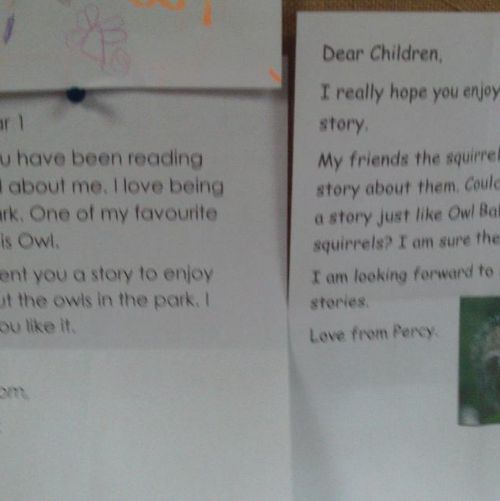 1
have been reading
about me. I love being
One of my favourite
is Owl.
you a story to enjoy
the owls in the park. I
like it.
Dear Children,
I really hope you enjoy
story.
My friends the
story about them.
a story just like Owl
squirrels? I am sure
I am looking forward to
stories.
Love from Percy.